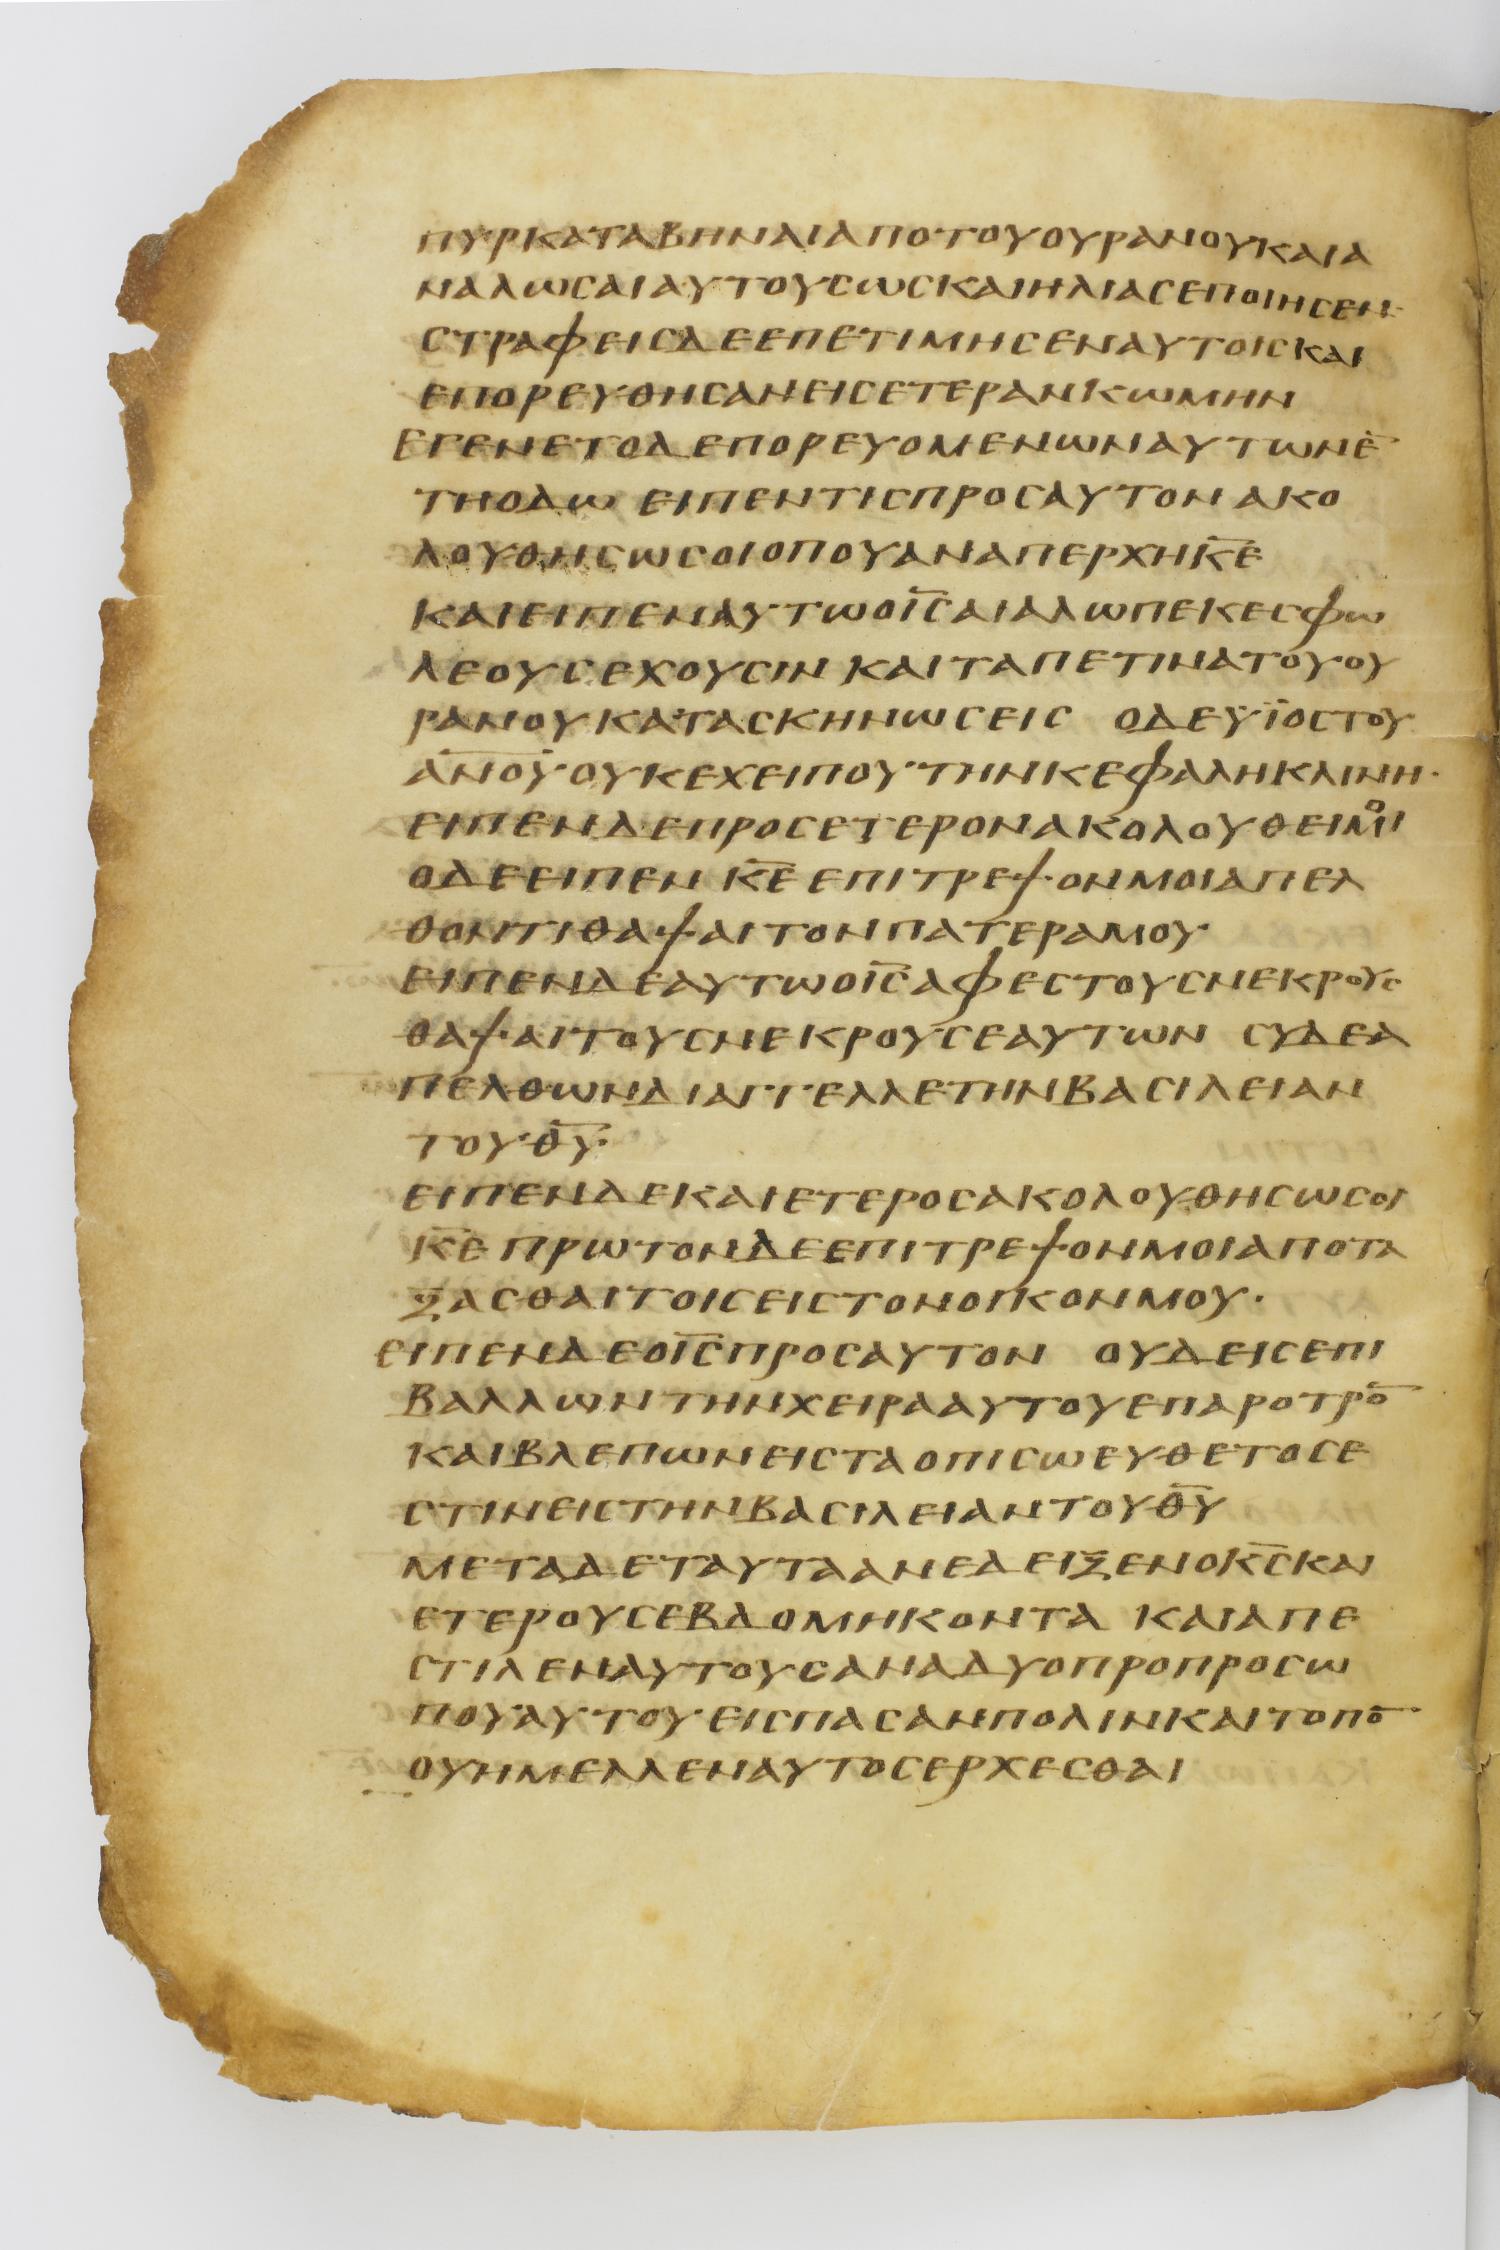 ΠΥΡΚΑΤΑΒΗΝΑΙΑΠΟΤΟΥΟΥΡΑΝΟΥΚΑΙΑ
ΝΑΛΩϹΑΙΑΥΤΟΥϹΩϹΚΑΙΗΛΙΑϹΕΠΟΙΗϹΕΝ·
ϹΤΡΑΦΕΙϹΔΕΕΠΕΤΙΜΗϹΕΝΑΥΤΟΙϹΚΑΙ
ΕΠΟΡΕΥΘΗϹΑΝΕΙϹΕΤΕΡΑΝΚΩΜΗΝ
ΕΓΕΝΕΤΟΔΕΠΟΡΕΥΟΜΕΝΩΝΑΥΤΩΝΕ̅
ΤΗΟΔΩ ΕΙΠΕΝΤΙϹΠΡΟϹΑΥΤΟΝΑΚΟ
ΛΟΥΘΗϹΩϹΟΙΟΠΟΥΑΝΑΠΕΡΧΗΚ̅Ε̅
ΚΑΙΕΙΠΕΝΑΥΤΩΟΙ̅Ϲ̅ΑΙΑΛΩΠΕΚΕϹΦΩ
ΛΕΟΥϹΕΧΟΥϹΙΝ ΚΑΙΤΑΠΕΤΙΝΑΤΟΥΟΥ
ΡΑΝΟΥΚΑΤΑϹΚΗΝΩϹΕΙϹ ΟΔΕΥΪΟϹΤΟΥ
Α̅Ν̅Ο̅Υ̅ΟΥΚΕΧΕΙΠΟΥΤΗΝΚΕΦΑΛΗΚΛΙΝΗ·
ΕΙΠΕΝΔΕΠΡΟϹΕΤΕΡΟΝΑΚΟΛΟΥΘΕΙΜΟΙ
ΟΔΕΕΙΠΕΝ Κ̅Ε̅ΕΠΙΤΡΕΨΟΝΜΟΙΑΠΕΛ
ΘΟΝΤΙΘΑΨΑΙΤΟΝΠΑΤΕΡΑΜΟΥ
ΕΙΠΕΝΔΕΑΥΤΩΟΙ̅Ϲ̅ΑΦΕϹΤΟΥϹΝΕΚΡΟΥϹ
ΘΑΨΑΙΤΟΥϹΝΕΚΡΟΥϹΕΑΥΤΩΝ ϹΥΔΕΑ
ΠΕΛΘΩΝΔΙΑΓΓΕΛΛΕΤΗΝΒΑϹΙΛΕΙΑΝ
ΤΟΥΘ̅Υ̅·
ΕΙΠΕΝΔΕΚΑΙΕΤΕΡΟϹΑΚΟΛΟΥΘΗϹΩϹΟΙ
Κ̅Ε̅ ΠΡΩΤΟΝΔΕΕΠΙΤΡΕΨΟΝΜΟΙΑΠΟΤΑ
ΞΑϹΘΑΙΤΟΙϹΕΙϹΤΟΝΟΙΚΟΝΜΟΥ·
ΕΙΠΕΝΔΕΟΙ̅Ϲ̅ΠΡΟϹΑΥΤΟΝ ΟΥΔΕΙϹΕΠΙ
ΒΑΛΛΩΝΤΗΝΧΕΙΡΑΑΥΤΟΥΕΠΑΡΟΤΡΟ̅
ΚΑΙΒΛΕΠΩΝΕΙϹΤΑΟΠΙϹΩΕΥΘΕΤΟϹΕ
ϹΤΙΝΕΙϹΤΗΝΒΑϹΙΛΕΙΑΝΤΟΥΘ̅Υ̅
ΜΕΤΑΔΕΤΑΥΤΑΑΝΕΔΕΙΞΕΝΟΚ̅Ϲ̅ΚΑΙ
ΕΤΕΡΟΥϹΕΒΔΟΜΗΚΟΝΤΑ ΚΑΙΑΠΕ
ϹΤΙΛΕΝΑΥΤΟΥϹΑΝΑΔΥΟΠΡΟΠΡΟϹΩ
ΠΟΥΑΥΤΟΥΕΙϹΠΑϹΑΝΠΟΛΙΝΚΑΙΤΟΠΟ̅
ΟΥΗΜΕΛΛΕΝΑΥΤΟϹΕΡΧΕϹΘΑΙ